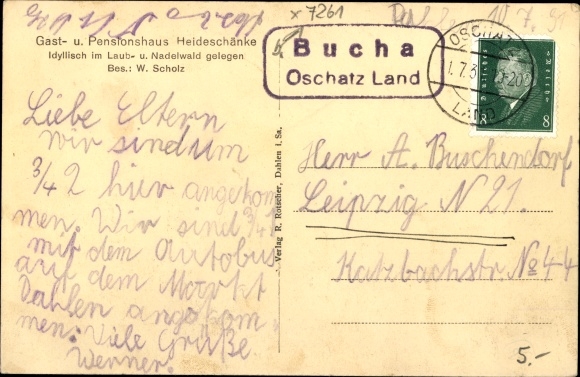 x 7261
Gast- u. Pensionshaus Heideschänke
Idyllisch im Laub- u. Nadelwald gelegen
Bes.: W. Scholz
Liebe Eltern
wir sind um
3/4 2 hier angekom
men. Wir sind 3/4 1
mit dem Autobus
auf dem Markt
Dahlen angekom
men. Viele Grüße
Werner.
Verlag R. Rotscher, Dahlen i. Sa.
Bucha
Oschatz Land
OSCHATZ
LAND
Deutsches Reich
8 8
Herr A. Buschendorf
Leipzig N 21.
Katzbachstr. No 44
5.-